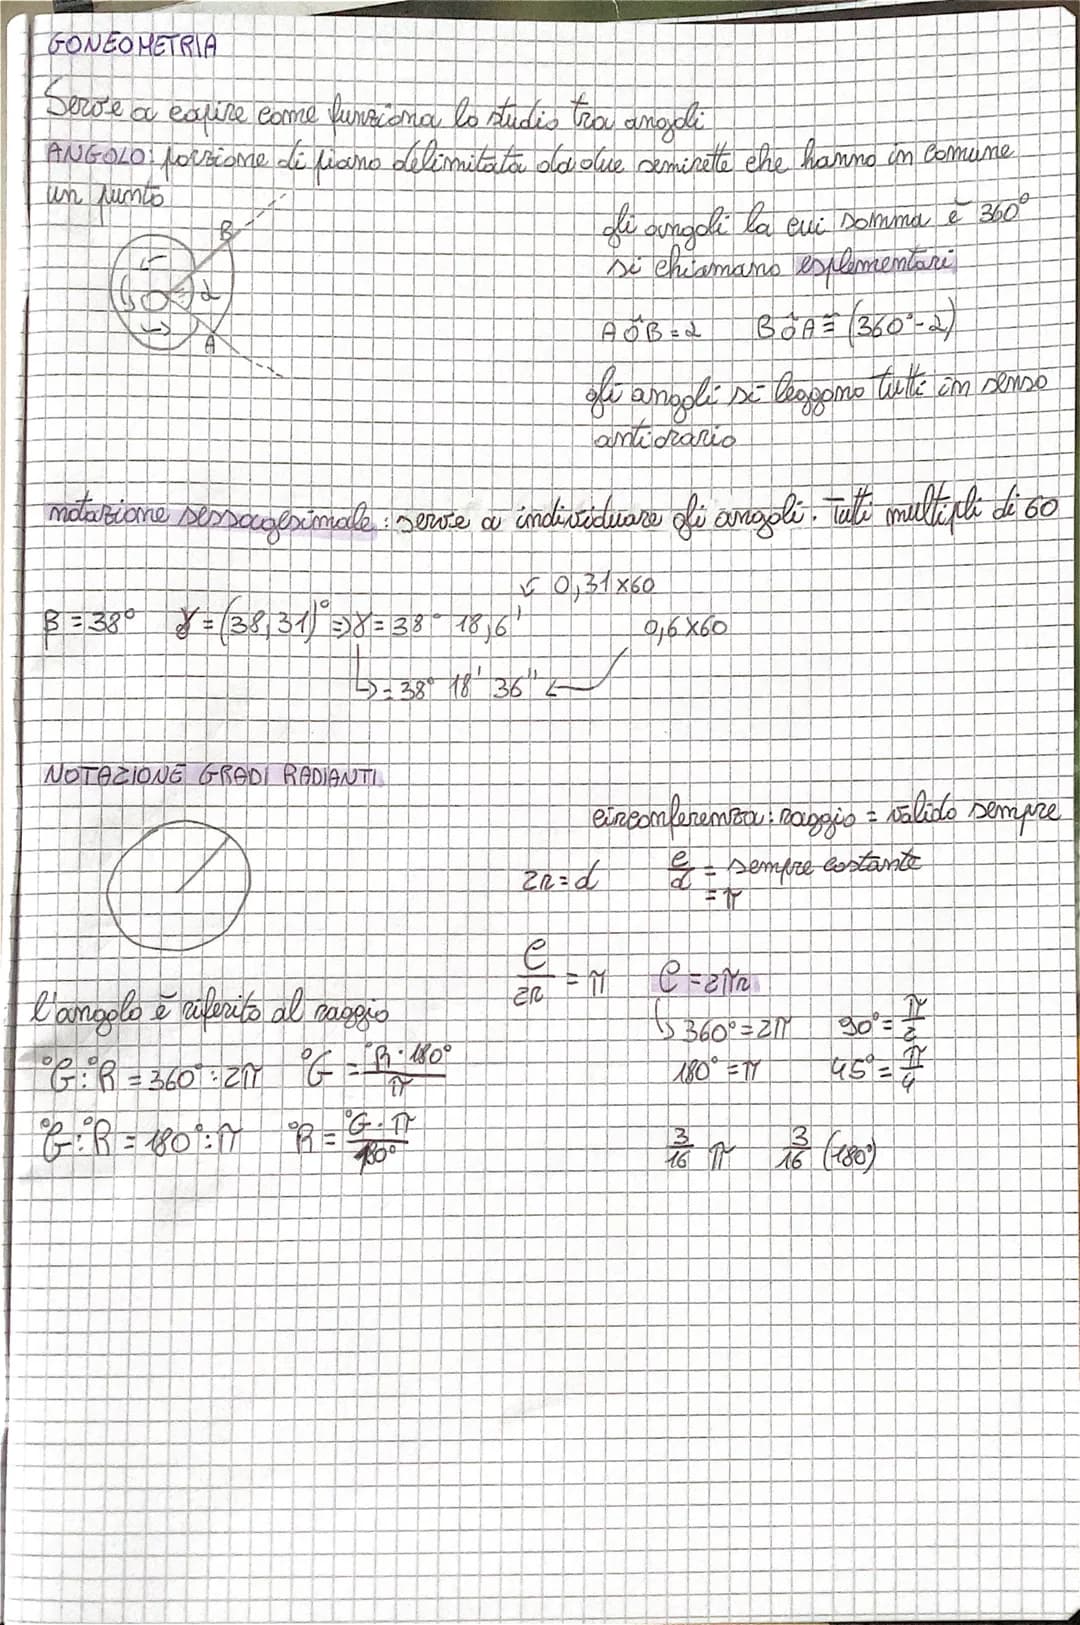 GONEOMETRIA
Serve a capire come funziona lo studio tra angoli
ANGOLO: porzione di piano delimitata da due semirette che hanno in comune
un punto
B
α
O
A
gli angoli la cui somma è 360°
si chiamano esplementari
AÔB = α BÔA ≅ (360° - α)
gli angoli si leggono tutti in senso
antiorario
notazione sessagesimale: serve a individuare gli angoli. Tutti multipli di 60
↙ 0,31×60
β = 38° γ = (38,31)° => γ = 38° 18,6' 0,6×60
↳ = 38° 18' 36" ←
NOTAZIONE GRADI RADIANTI
circonferenza: raggio = valido sempre
2r = d c/d = sempre costante
= π
c/2r = π C = 2πr
l'angolo è riferito al raggio
↳ 360° = 2π 90° = π/2
°G : °R = 360° : 2π °G = °R · 180°/π
180° = π 45° = π/4
°G : °R = 180° : π °R = °G · π/180°
3/16 π 3/16 (180°)